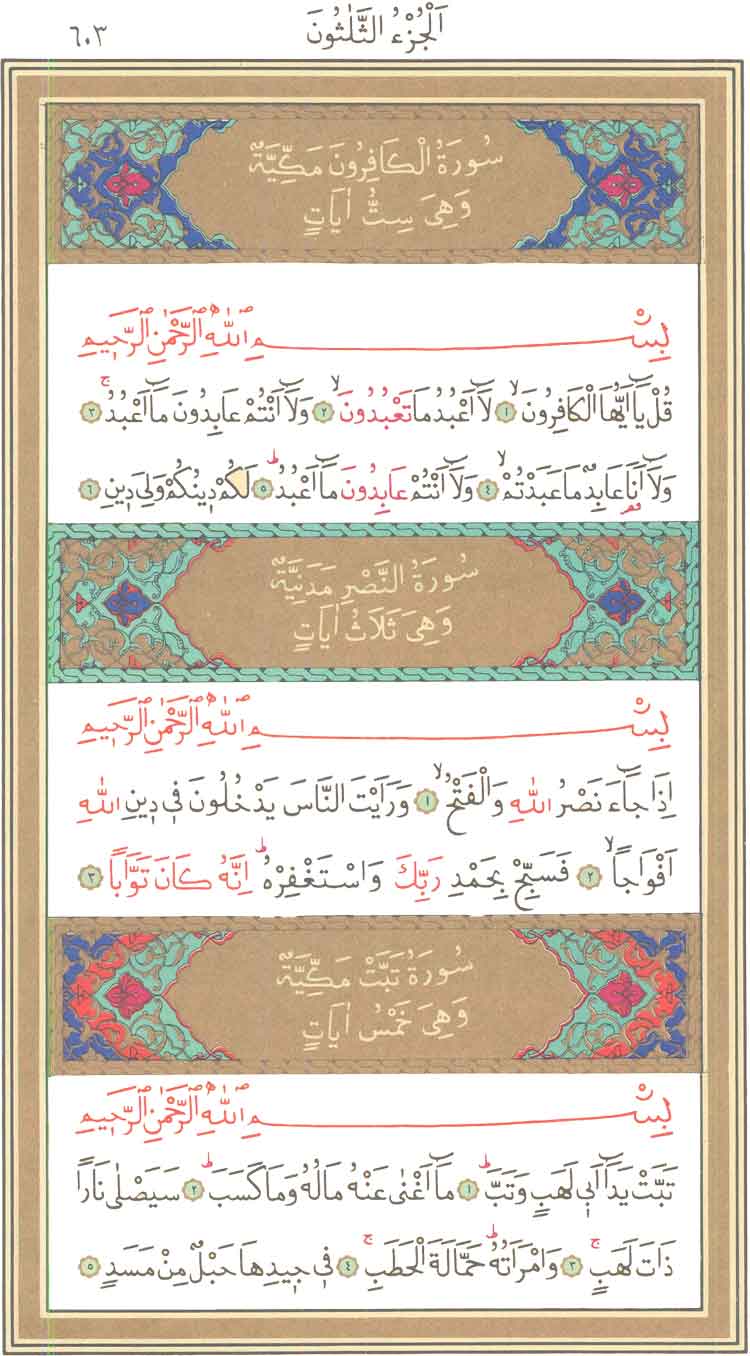 اَلْجُزْءُ الثَّلٰثُونَ ٦٠٣
سُورَةُ الْكَافِرُونَ مَكِّيَّةٌ
وَهِىَ سِتُّ اٰيَاتٍ
بِسْمِ اللّٰهِ الرَّحْمٰنِ الرَّحٖيمِ
قُلْ يَٓا اَيُّهَا الْكَافِرُونَۙ ١ لَٓا اَعْبُدُ مَا تَعْبُدُونَۙ ٢ وَلَٓا اَنْتُمْ عَابِدُونَ مَٓا اَعْبُدُۚ ٣
وَلَٓا اَنَا۬ عَابِدٌ مَا عَبَدْتُمْۙ ٤ وَلَٓا اَنْتُمْ عَابِدُونَ مَٓا اَعْبُدُؕ ٥ لَكُمْ دٖينُكُمْ وَلِىَ دٖينِ ٦
سُورَةُ النَّصْرِ مَدَنِيَّةٌ
وَهِىَ ثَلَاثُ اٰيَاتٍ
بِسْمِ اللّٰهِ الرَّحْمٰنِ الرَّحٖيمِ
اِذَا جَٓاءَ نَصْرُ اللّٰهِ وَالْفَتْحُۙ ١ وَرَاَيْتَ النَّاسَ يَدْخُلُونَ فٖى دٖينِ اللّٰهِ
اَفْوَاجًاۙ ٢ فَسَبِّحْ بِحَمْدِ رَبِّكَ وَاسْتَغْفِرْهُؕ اِنَّهُ كَانَ تَوَّابًا ٣
سُورَةُ تَبَّتْ مَكِّيَّةٌ
وَهِىَ خَمْسُ اٰيَاتٍ
بِسْمِ اللّٰهِ الرَّحْمٰنِ الرَّحٖيمِ
تَبَّتْ يَدَٓا اَبٖى لَهَبٍ وَتَبَّؕ ١ مَٓا اَغْنٰى عَنْهُ مَالُهُ وَمَا كَسَبَؕ ٢ سَيَصْلٰى نَارًا
ذَاتَ لَهَبٍۚ ٣ وَامْرَاَتُهُؕ حَمَّالَةَ الْحَطَبِۚ ٤ فٖى جٖيدِهَا حَبْلٌ مِنْ مَسَدٍ ٥